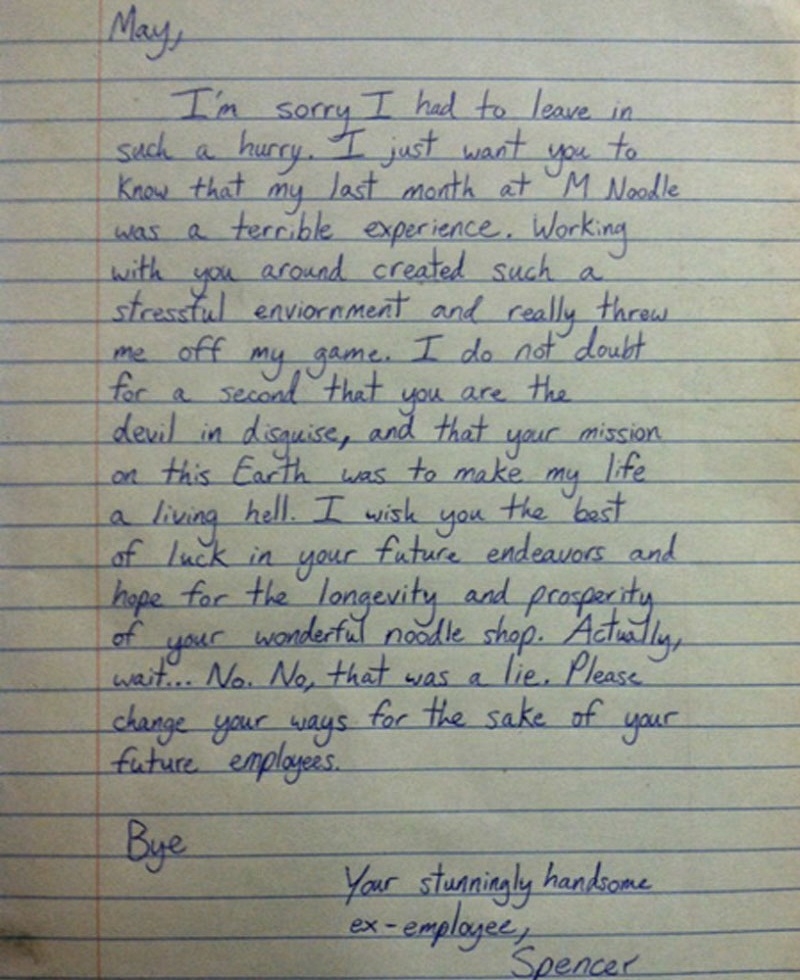 May,
I'm sorry I had to leave in
such a hurry. I just want you to
know that my last month at M Noodle
was a terrible experience. Working
with you around created such a
stressful enviornment and really threw
me off my game. I do not doubt
for a second that you are the
devil in disguise, and that your mission
on this Earth was to make my life
a living hell. I wish you the best
of luck in your future endeavors and
hope for the longevity and prosperity
of your wonderful noodle shop. Actually,
wait... No. No, that was a lie. Please
change your ways for the sake of your
future employees.
Bye
Your stunningly handsome
ex-employee,
Spencer